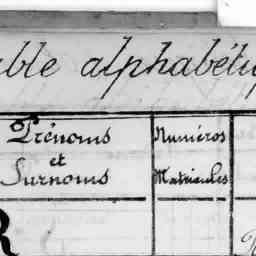 able alphabétiq
Prénoms
et
Surnoms
Numéros
Matricules
R